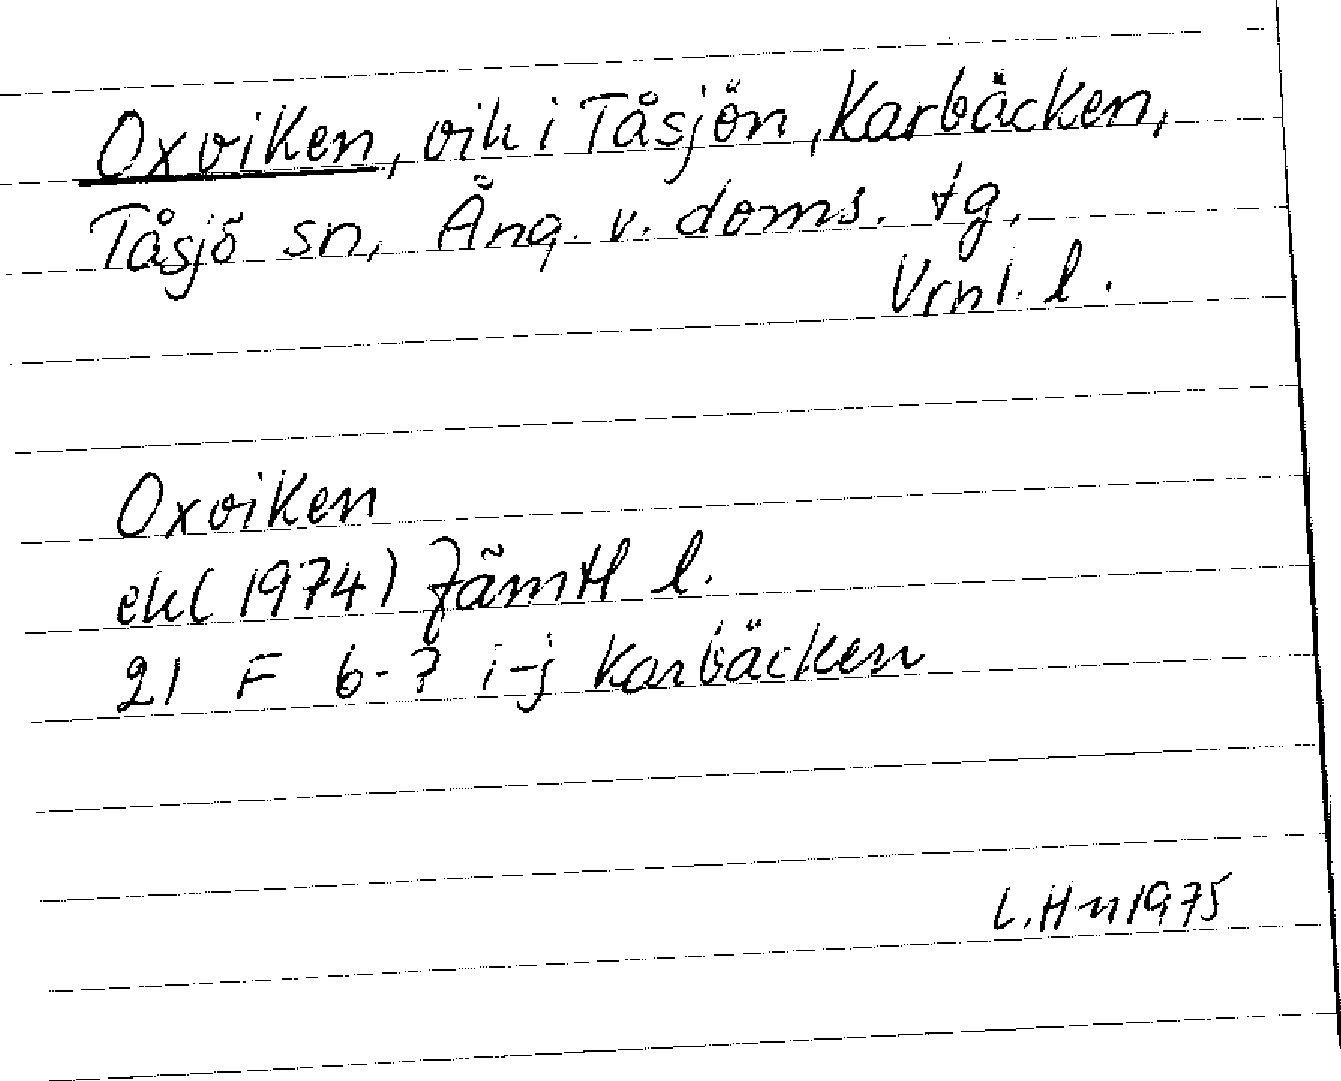 Oxviken, vik i Tåsjön, Karbäcken,
Tåsjö sn, Ång. v. doms. tg,
Vrnl. l.
Oxviken
ek (1974) Jämtl l.
21 F 6-7 i-j Karbäcken
L.H-n 1975